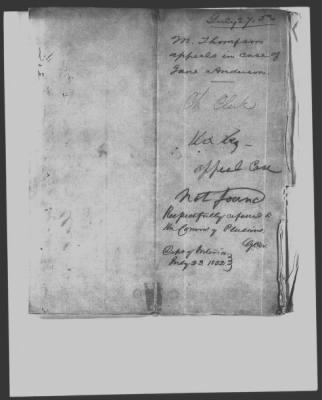 July 27, 52
M. Thompson
appeals in case of
Jane Anderson
Ch. Clerk
appeal Case
Not found
Respectfully referred to
the Commr of Pensions
Dept of Interior
July 22 1852